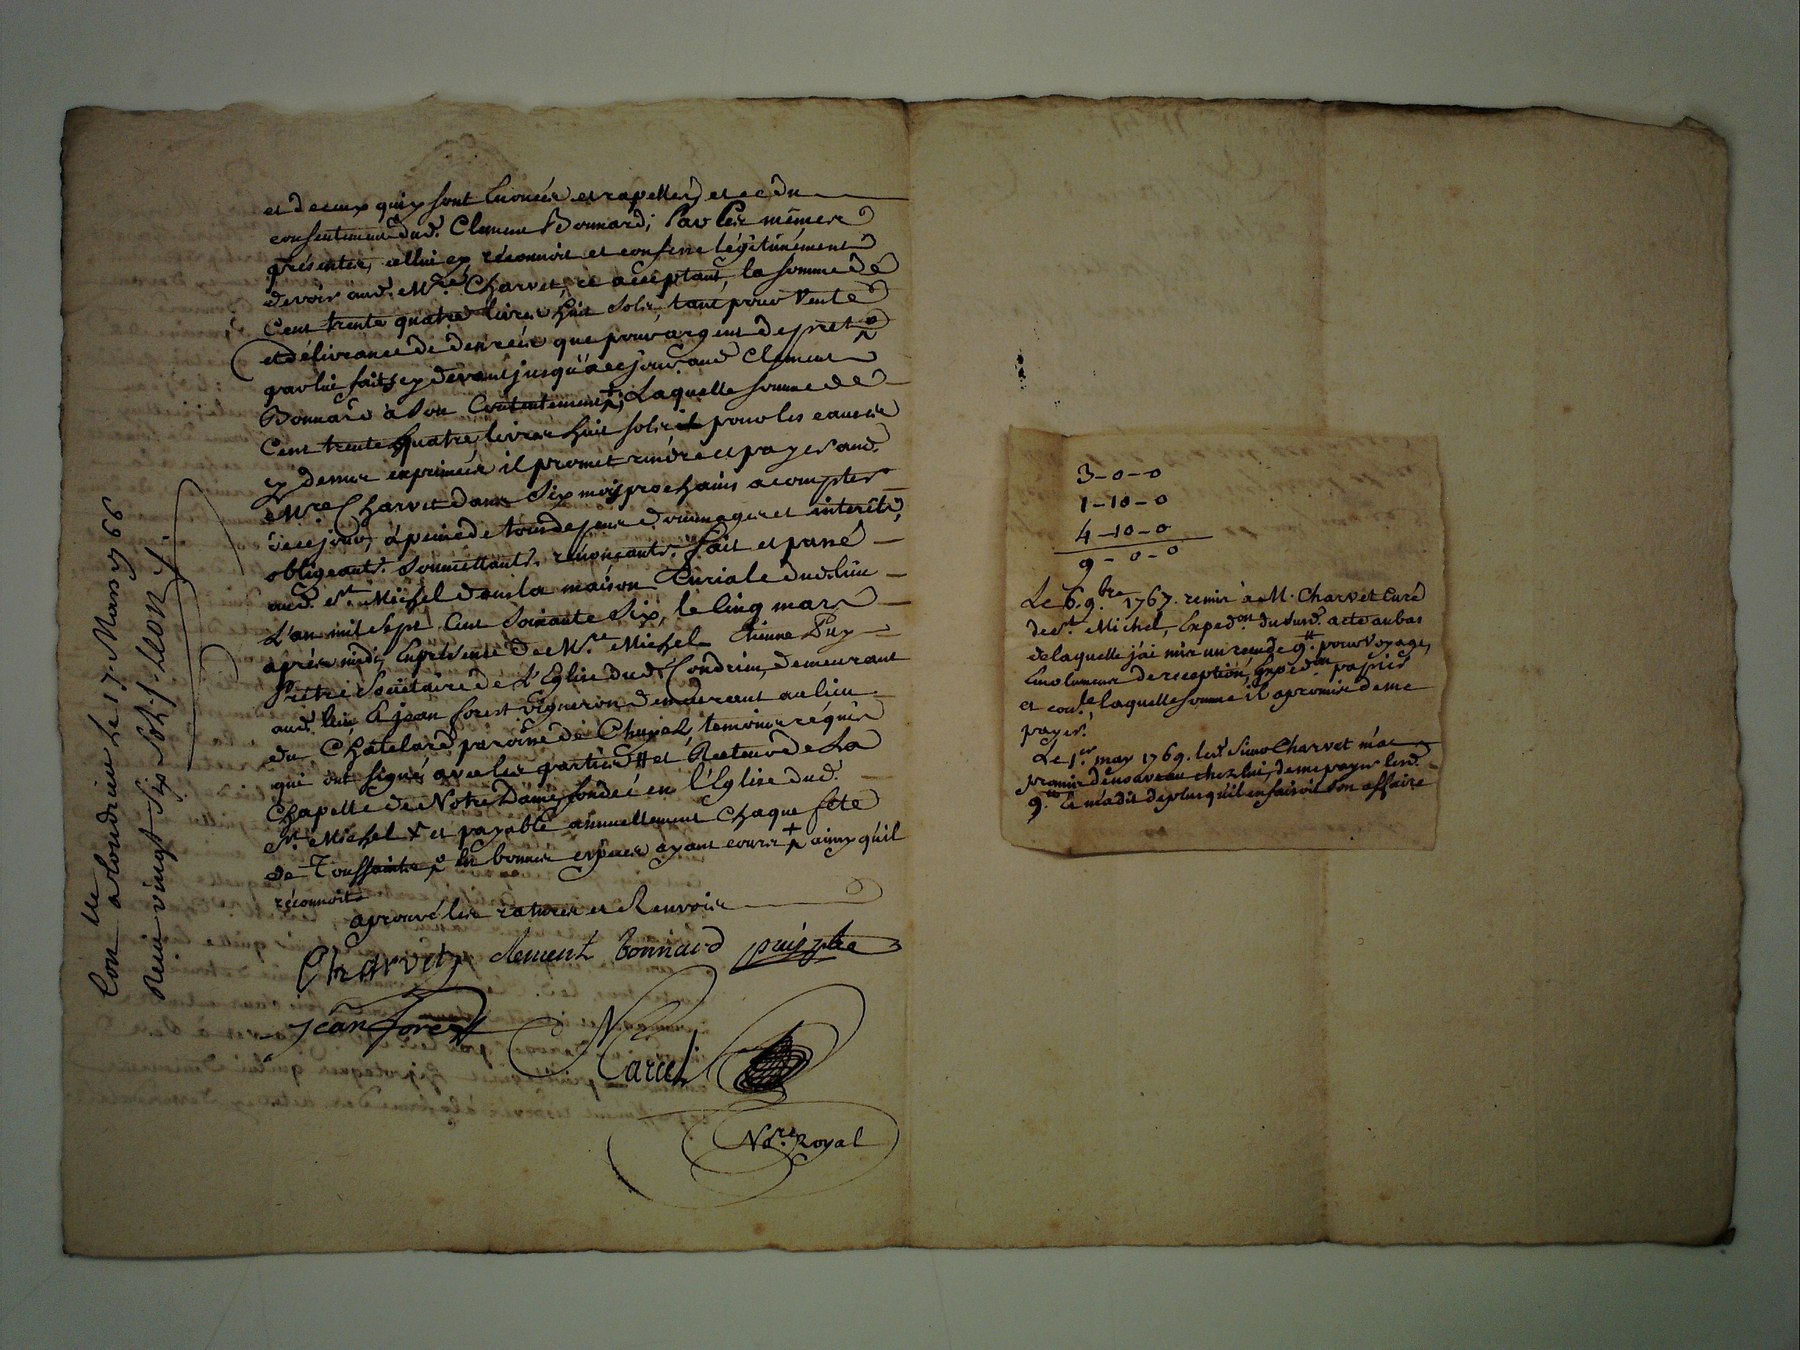 et de ceux qui y sont énoncés et rapellés, et ce du
consentement dud. Clement Bonnard; Par les mêmes
présentes, celluicy réconnoit et confesse légitimément
devoir aud. Mre. Charvet, ce acceptant, la somme de
Cent trente quatre livres huit sols tant pour Vente
et délivrance de denrées que pour argent de pret
par lui faits cy devant jusqu'à ce jour aud. Clement
Bonnard à son Contentement, Laquelle somme de
Cent trente quatre livres huit sols et pour les causes
cy dessus exprimées il promet rendre et payer aud.
Mre Charvet dans Six mois prochains a compter
de ce jour, à peine de tous depens dommages et interêts,
obligeant. Soumettant. renonçants. Fait et passé
aud. St. Michel dans la maison Curiale dud. lieu
L'an mil sept Cent Soixante Six, le Cinq mars
après midy En présence de Mre. Michel Etienne Puy
Prêtre Sociétaire de L'Eglise dud. Condrieu, demeurant
aud. lieu & jean forest vigneron demeurant au lieu
du Châtelard paroisse de Chuyer, temoins réquis
qui ont signé avec les parties # et Recteur de La
Chapelle de Notre Dame, fondée en l'Eglise dud.
St. Michel + et payable annuellement Chaque fête
de Toussaints en bonnes espèces ayant cours + ainsy qu'il
réconnoit
aprouvé les ratures et Renvois
Charvet clement bonnard puy ptre
jean forest
Marcel
Nore. Royal
Con.lle a Condrieu Le 17. Mars 1766
Reçu vingt Six Sols J. LEON
3-0-0
1-10-0
4-10-0
9-0-0
Le 6. 9.bre 1767. remis à M. Charvet Curé
de St. Michel, Exped.on du susd. acte au bas
de laquelle j'ai mis un reçu de 9.tt pour voyage,
Emolument de reception, Exped.on papier
et con.le laquelle somme il a promis de me
payer.
Le 1.er may 1769. led. Sieur Charvet m'a
promis de nouveau chez lui, de me payer lesd.
9.tt Et m'a dit de plus qu'il en faisoit Son affaire